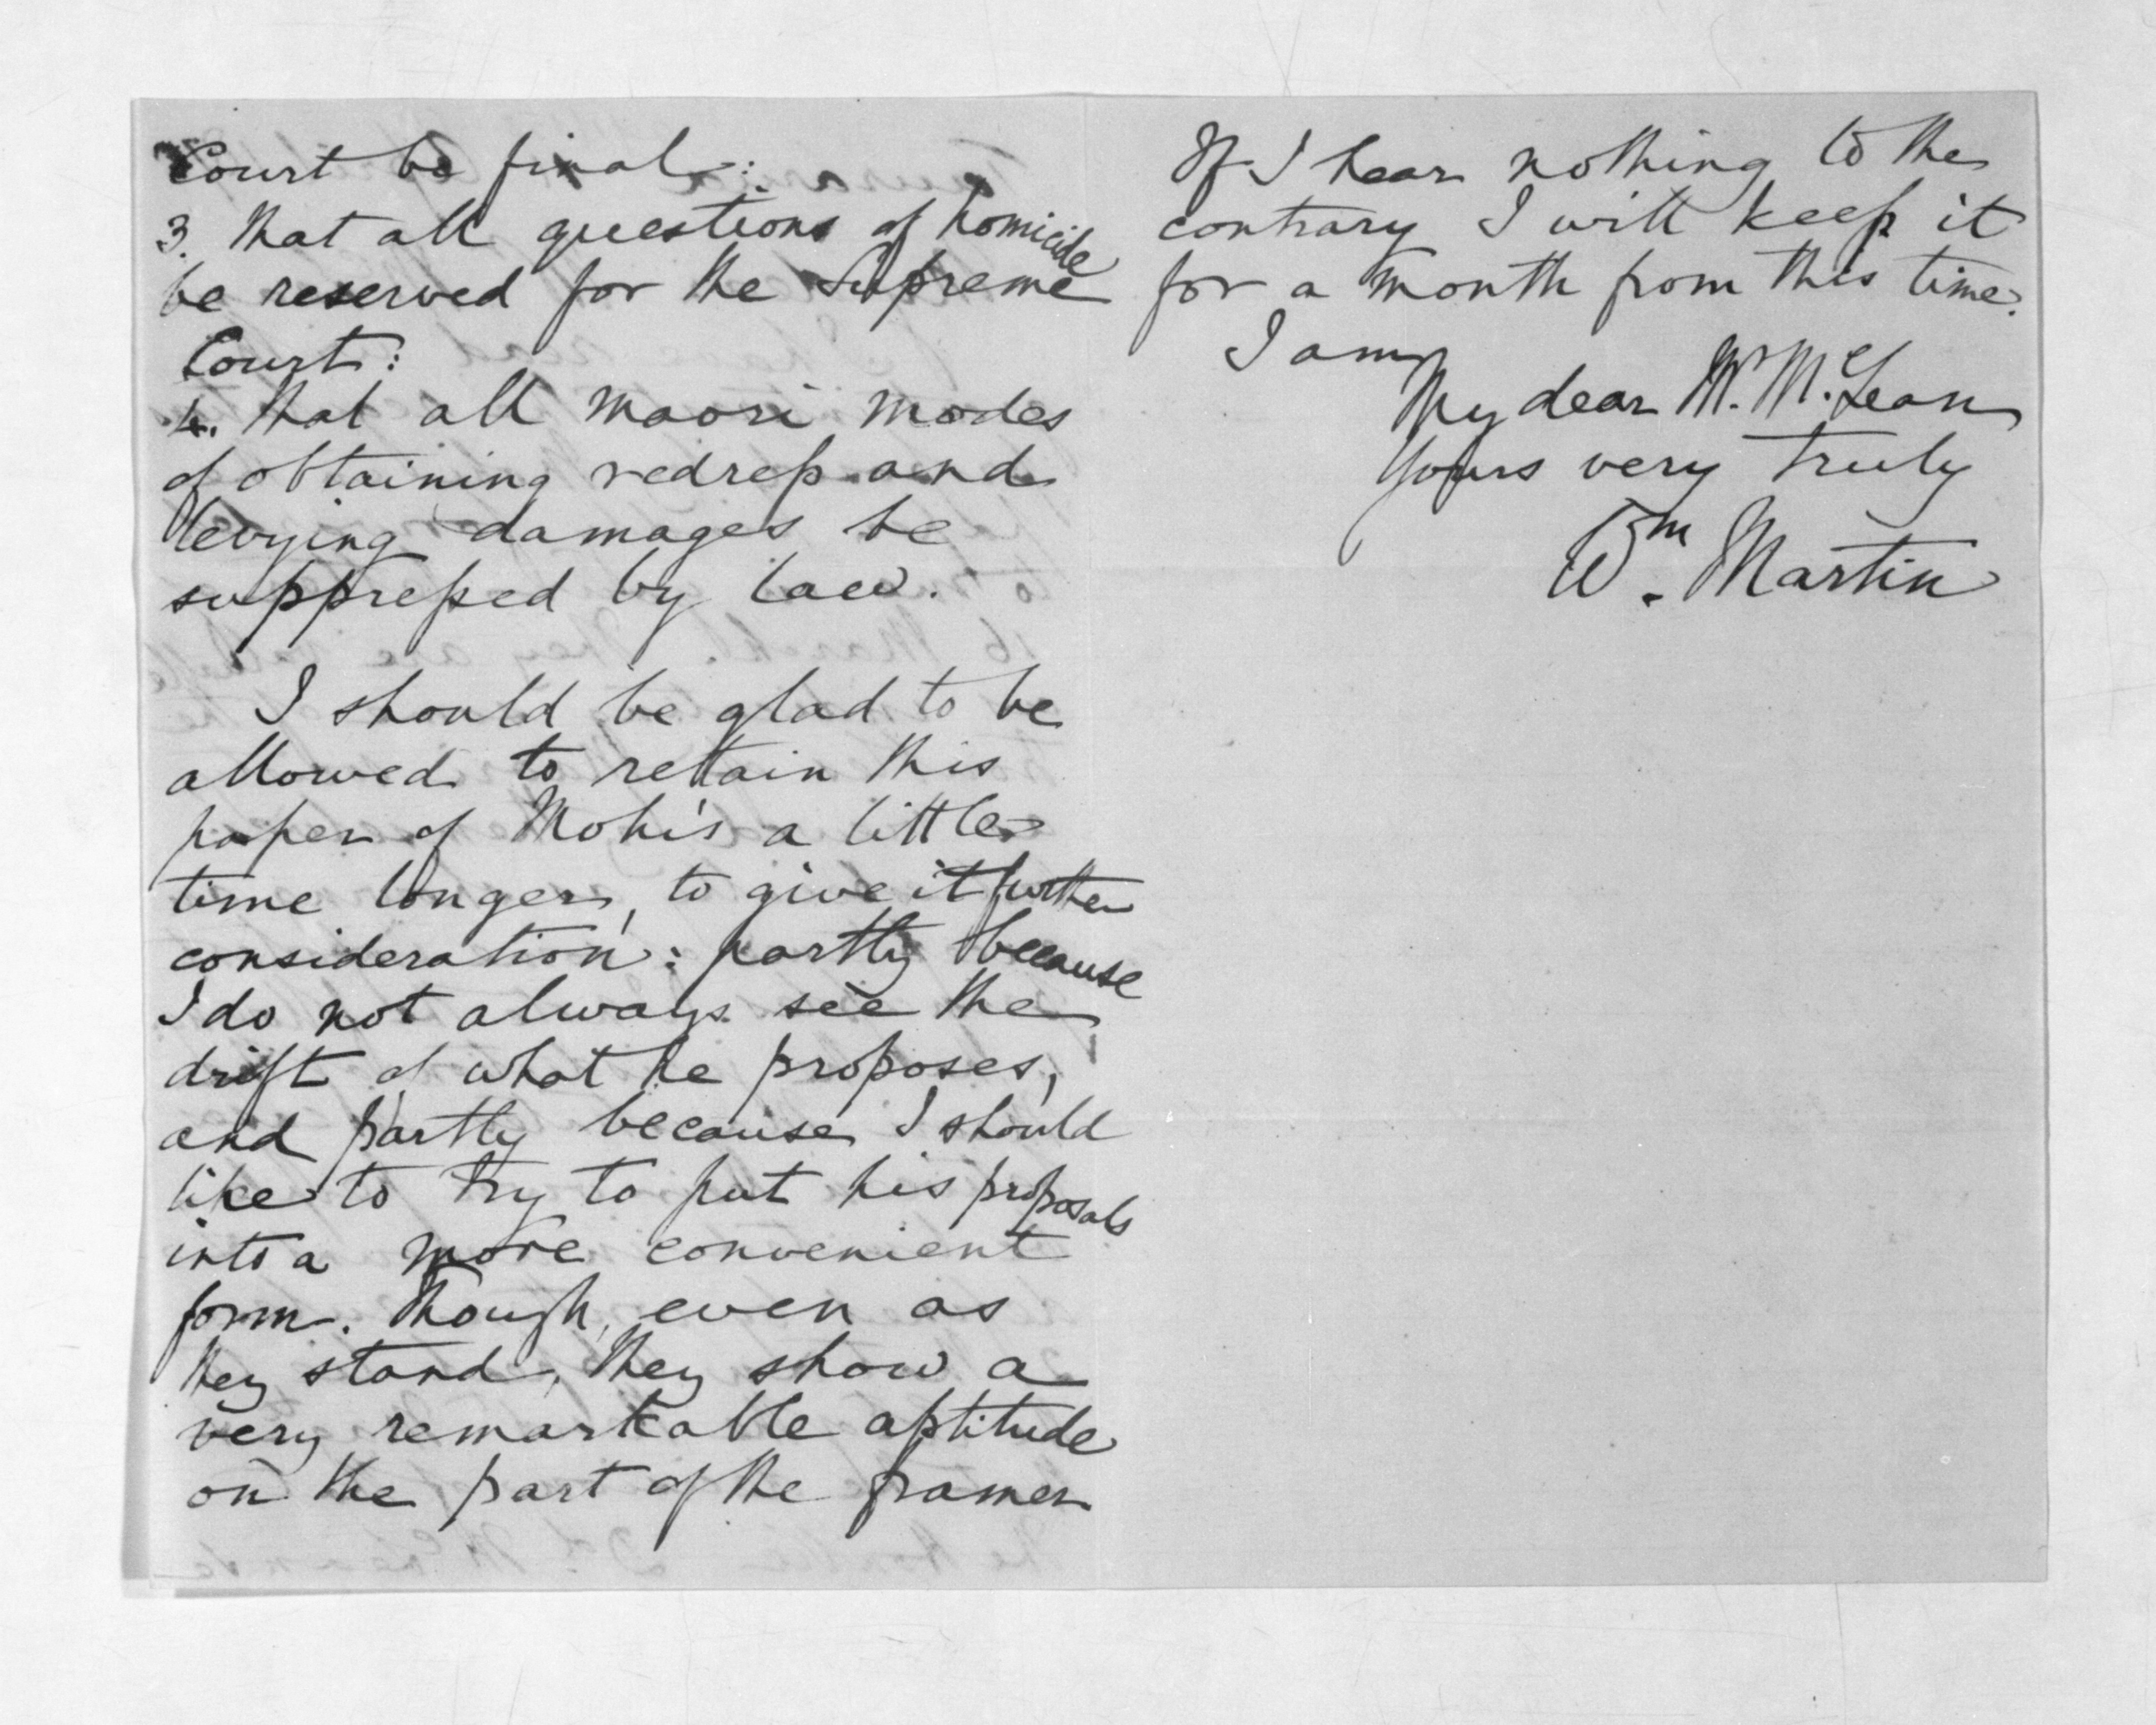 Court be final:
3. that all questions of homicide
be reserved for the Supreme
Court:
4. that all maori modes
of obtaining redress and
levying damages be
suppressed by law.
I should be glad to be
allowed to retain this
paper of Mohi's a little
time longer, to give it further
consideration: partly because
I do not always see the
drift of what he proposes,
and partly because I should
like to try to put his proposals
into a more convenient
form. Though, even as
they stand, they show a
very remarkable aptitude
on the part of the framer
If I hear nothing to the
contrary I will keep it
for a month from this time.
I am
My dear Mr. McLean
Yours very truly
Wm. Martin